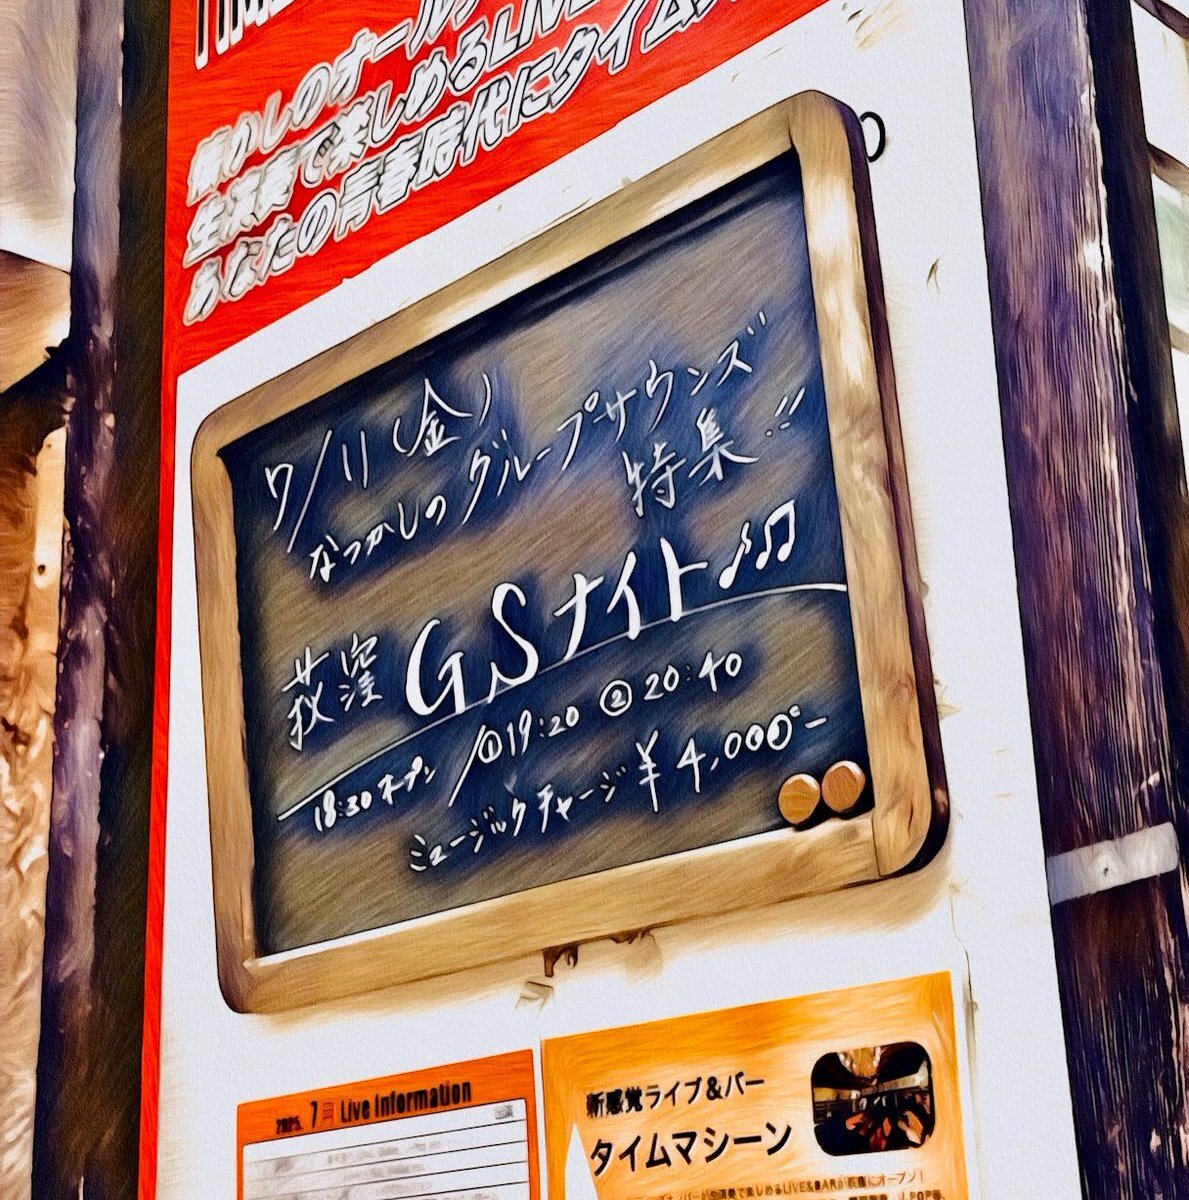 懐かしのオール
生演奏で楽しめるLIVE
あなたの青春時代にタイム
7/11(金)
なつかしのグループサウンズ
特集!!
荻窪 GSナイト♪♫
18:30 オープン / ①19:20 ②20:40
ミュージックチャージ ¥4,000-
2025. 7月 Live Information
新感覚ライブ&バー
タイムマシーン